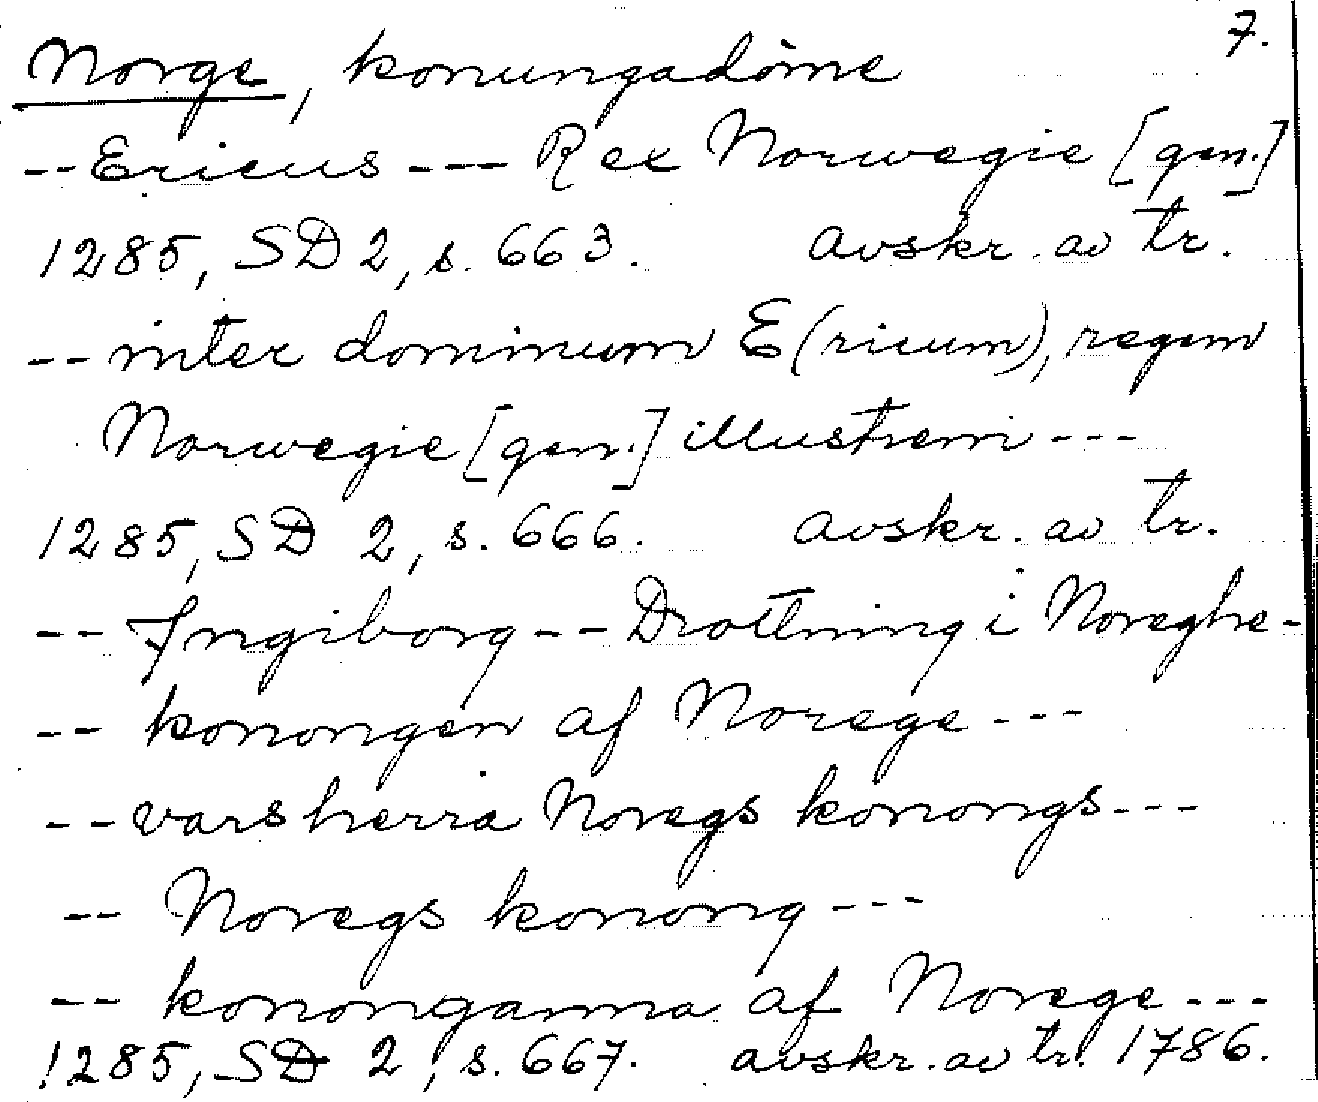 7.
Norge, konungadöme
-- Ericus --- Rex Norwegie [gen.]
1285, SD 2, s. 663. avskr. av tr.
-- inter dominum E(ricum), regem
Norwegie [gen.] illustrem ---
1285, SD 2, s. 666. avskr. av tr.
-- Ingiborg -- Drottning i Noreghe -
-- konongen af Norege ---
-- vars herra Noregs konongs ---
-- Noregs konong ---
-- kononganna af Norege ---
1285, SD 2, s. 667. avskr. av tr. 1786.